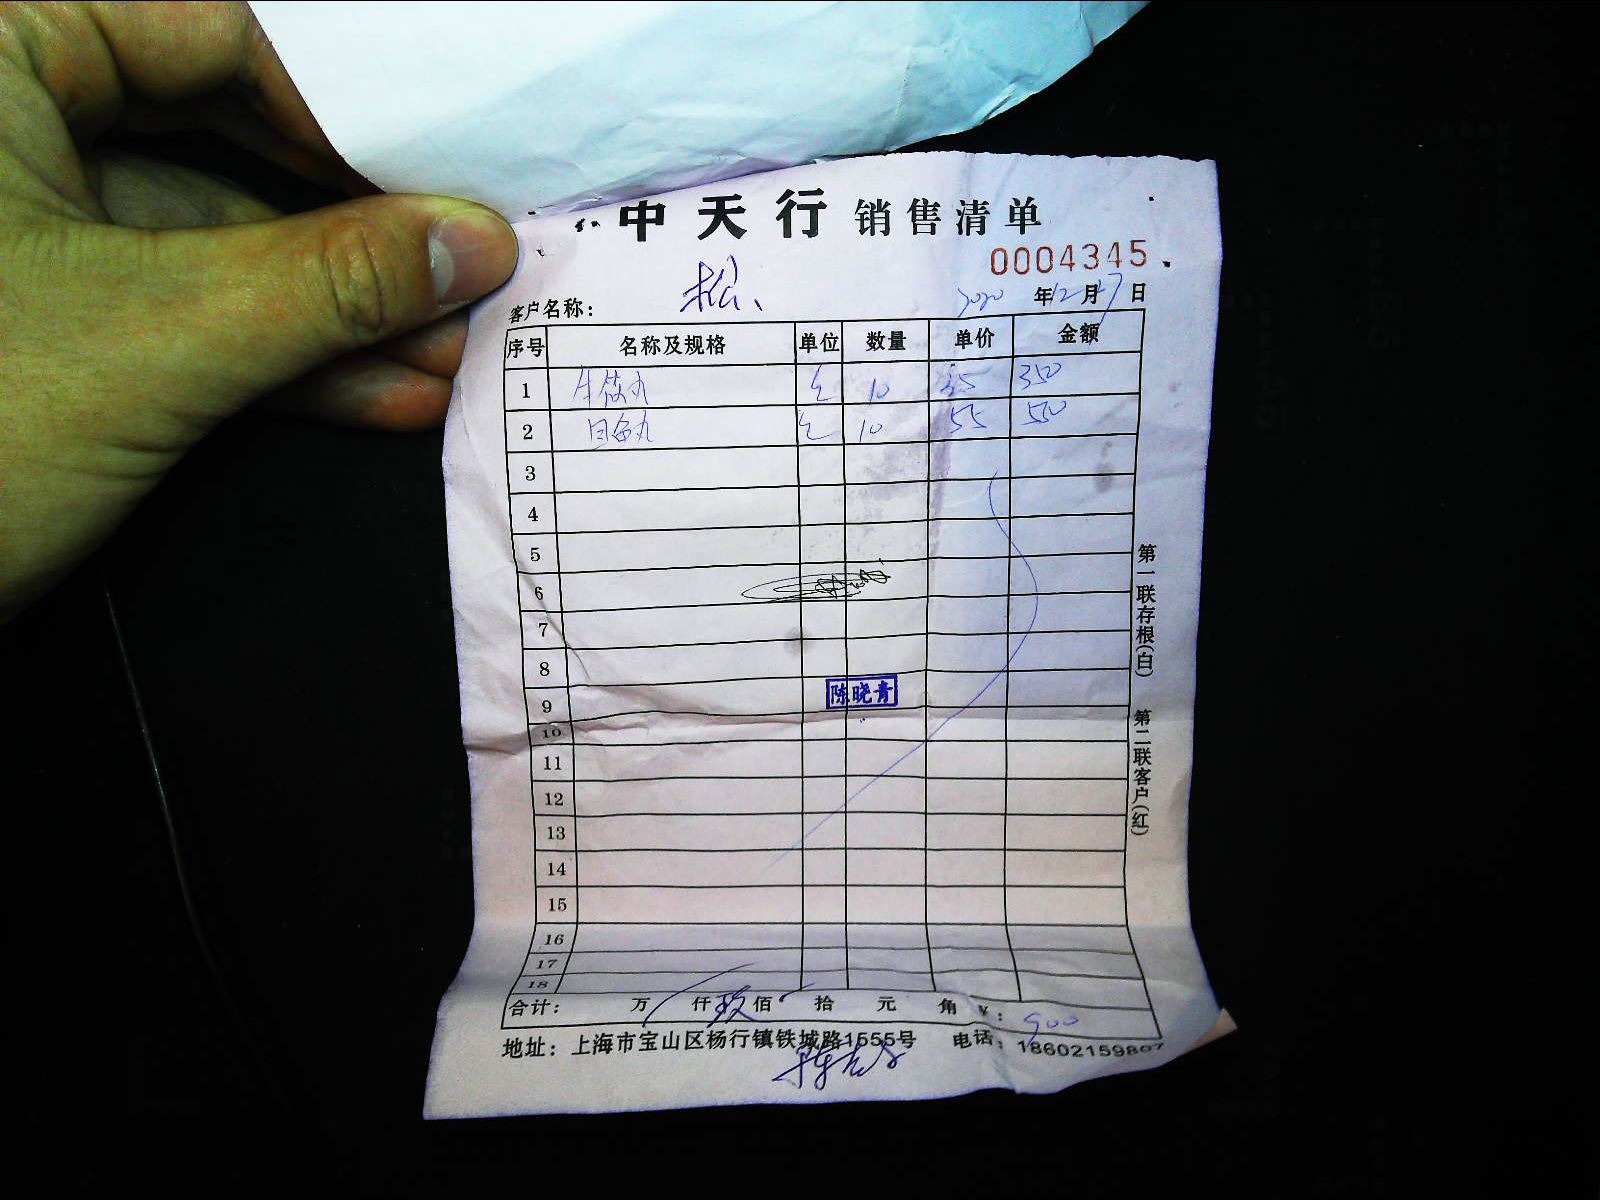 中天行 销售清单
0004345
客户名称： 松
2020 年 12 月 17 日
序号 名称及规格 单位 数量 单价 金额
1 牛筋丸 包 10 35 350
2 目鱼丸 包 10 55 550
3
4
5
6
7
8
9 陈晓青
10
11
12
13
14
15
16
17
18
合计： 万 仟 玖 佰 拾 元 角 ¥： 900
地址：上海市宝山区杨行镇铁城路1555号 电话：18602159807
第一联存根(白) 第二联客户(红)